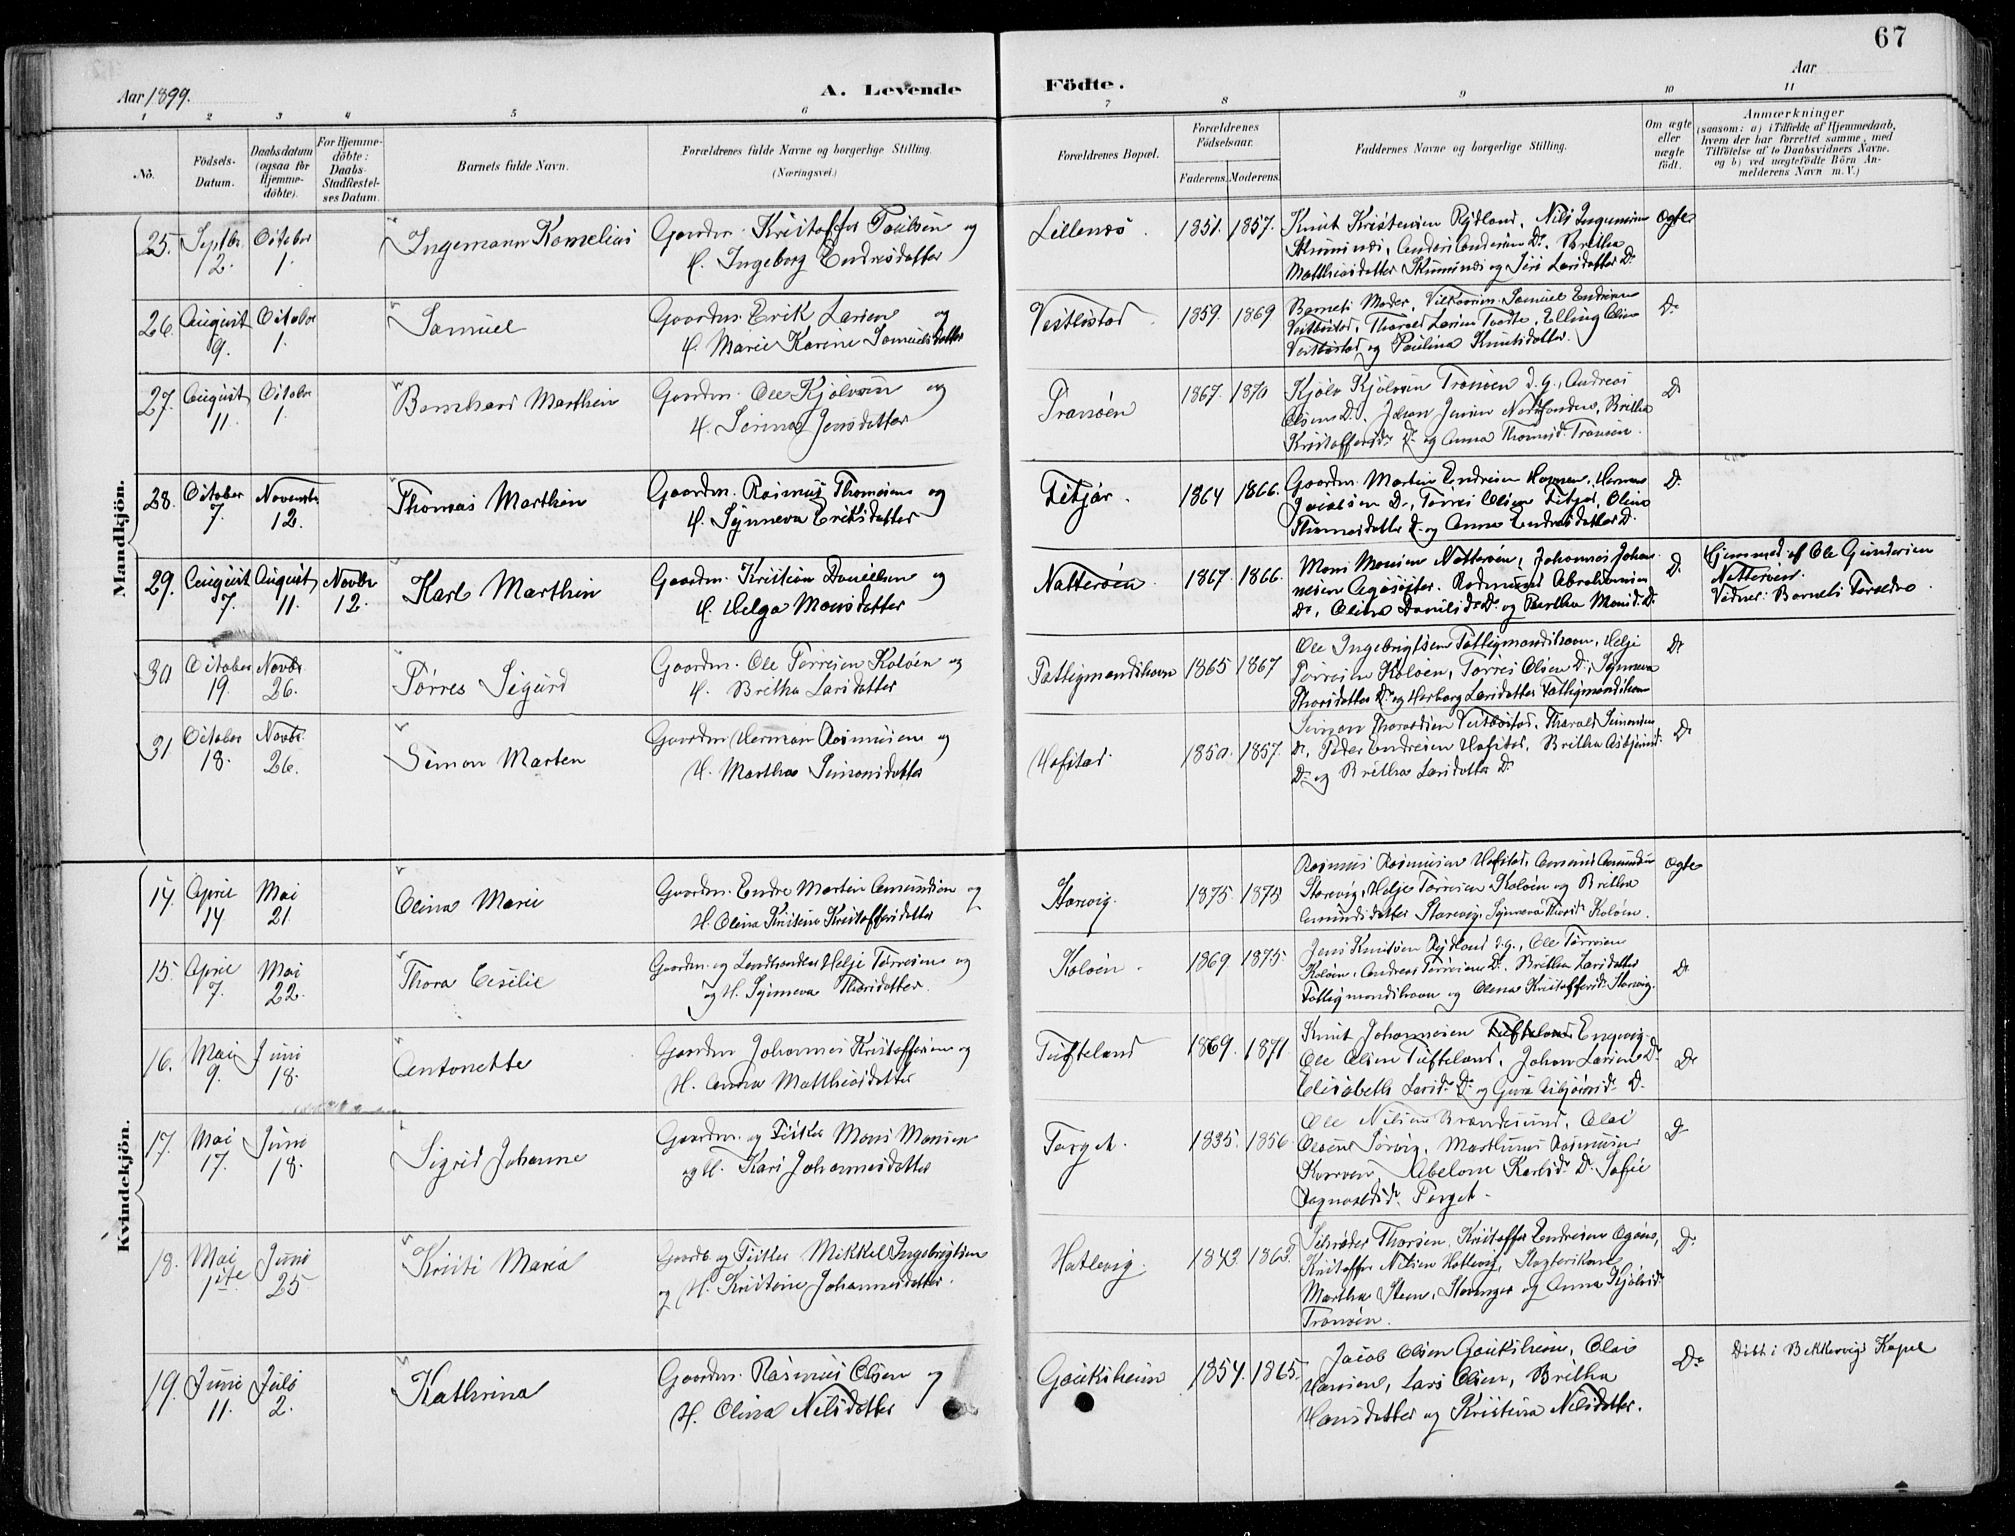 67
Aar 1899.
A. Levende
Födte.
Aar
1 2 3 4 5 6 7 8 9 10 11
No.
Födsels-Datum.
Daabsdatum (ogsaa for Hjemme-döbte).
For Hjemme-döbte: Daabs-Stadfæstel-ses Datum.
Barnets fulde Navn.
Forældrenes fulde Navne og borgerlige Stilling.
(Næringsvei.)
Forældrenes Bopæl.
Forældrenes Födselsaar.
Faderens. Moderens.
Faddernes Navne og borgerlige Stilling.
Om ægte eller uægte födt.
Anmærkninger
(saasom: a) i Tilfælde af Hjemmedaab, hvem der har forrettet samme, med Tilföielse af to Daabsvidners Navne. og b) ved uægtefödte Börn Anmelderens Navn m. V.)
Mandkjön.
25. Septbr. 2. October 1. Ingemann Kornelius Gaardm. Kristoffer Paulsen og
H. Ingeborg Endresdatter
Lillenes. 1851. 1857. Knut Kristensen Rydland, Nils Ingemann
Skumsnes, Anders Andersen Do. Britha
Matthiasdatter Skumsnes og Siri Larsdatter Do
Ægte
26. August 9. October 1. Samuel Gaardm. Erik Larsen og
H. Marie Karine Samuelsdatter
Vestbøstad. 1859. 1869 Barnets Moder, Samuel Endresen
Vestbøstad, Tharald Larsen Tvedte, Elling Olsen
Vestbøstad og Paulina Knutsdatter.
Do
27. August 11. October 1. Bernhard Marthin Gaardm. Ole Kjølvsen og
H. Serina Jensdatter
Tranøen 1867. 1870 Kjølv Kjølvsen Tranøen d.y., Andreas
Olsen Do. Johan Jensen Britha
Kristoffersdr. Do og Anna Thomasd. Tranøen.
Do
28. October 7. Novembr. 12. Thomas Marthin Gaardm. Rasmus Thomesen og
H. Synneva Eriksdatter
Fitjar. 1864 1866. Gaardm. Martin Endresen Havnen, Herman
Jacobsen Do, Torres Olsen Fitjar, Olina
Thomasdatter Do og Anna Endresdatter Do.
Do
29. August 7. August 11. Novbr 12. Karl Marthin Gaardm. Kristian Danielsen og
H. Helga Monsdatter
Natterøen. 1867. 1866. Mons Monsen Natterøen, Johannes Johan-
nesen Agasøster. Rasmund Abrahamsen
Do, Olina Danielsdr. Do og Bertha Monsd. Do.
Do
Hjemmed. af Ole Gundersen
Natterøen.
Vidner: Barnets Forældre.
30 October 19. Novbr. 26. Tørres Sigurd Gaardm. Ole Tørresen Koløen og
H. Britha Larsdatter
Fattigmandshavn 1865 1867 Ole Ingebrigtsen Fattigmandshavn, Helje
Tørresen Koløen, Tørres Olsen Do, Synneva
Tharsdatter Do og Herborg Larsdatter Fattigmandshavn
Do
31 October 18. Novbr. 26. Simon Marten Gaardm. Herman Rasmusen og
H. Martha Simonsdatter
Hofstad. 1850. 1857. Simon Tharaldsen Vestbøstad, Tharald Simonsen
Do, Peder Endresen Hofstad, Britha Asbjørnsd.
Do og Britha Larsdatter Do
Do
Kvindekjön.
14. April 14 Mai 21. Olina Marie Gaardm. Endre Martin Amundsen og
H. Olina Kristine Kristoffersdatter
Starvig. 1875. 1875 Rasmus Rasmusen Hofstad, Amund Amundsen
Starevig, Helje Tørresen Koløen og Britha
Amundsdatter Starevig, Synneva Tharsdr. Koløen.
Ægte
15. April 7. Mai 22. Thora Cesilie Gaardm. og Landhandler Helje Tørresen og
og H. Synneva Tharsdatter.
Koløen. 1869 1875. Jens Knutsen Rydland d.y., Ole Tørresen
Koløen. Andreas Tørresen Do. Britha Larsdatter
Fattigmandshavn og Olina Kristoffersdr. Starvig.
Do
16. Mai 9. Juni 18. Antonette Gaardm Johannes Kristoffersen og
H. Anna Matthiasdatter
Tufteland 1869. 1871 Knut Johannesen Tufteland Engevig.
Ole Olsen Tufteland, Johan Larsen Do
Elisabeth Larsdr. Do og Guria Asbjørnsdr. Do.
Do
17. Mai 17. Juni 18. Sigrid Johanne Gaardm. og Fisker Mons Monsen
og H. Kari Johannesdatter
Torget. 1835. 1856. Ole Nilsen Brandesund, Olai
Olsen Sørvig, Marthinus Rasmusen
Korsven Abelone Karlsdr. Do. Sofie
Ragnvaldsdr. Torget.
Do
18. Mai 1ste Juni 25. Kristi Maria Gaardb. og Fisker Mikkel Ingebrigtsen
og H. Kristine Johannesdatter.
Hatlevig. 1843. 1862. Schrøder Thorsen, Kristoffer Endresen Aganes,
Kristoffer Nilsen Hatlevig,
Martha Steen, Stavanger og Anna Kjølvsd.
Tranøen.
Do
19. Juni 11. Juli 2. Kathrina Gaardm. Rasmus Olsen og
H. Olina Nilsdatter
Gauksheim 1854. 1865. Jacob Olsen Gauksheim, Olai
Hansen, Lars Olsen, Britha
Hansdatter og Kristina Nilsdatter.
Do
Døbt i Bekkervigs Kapel